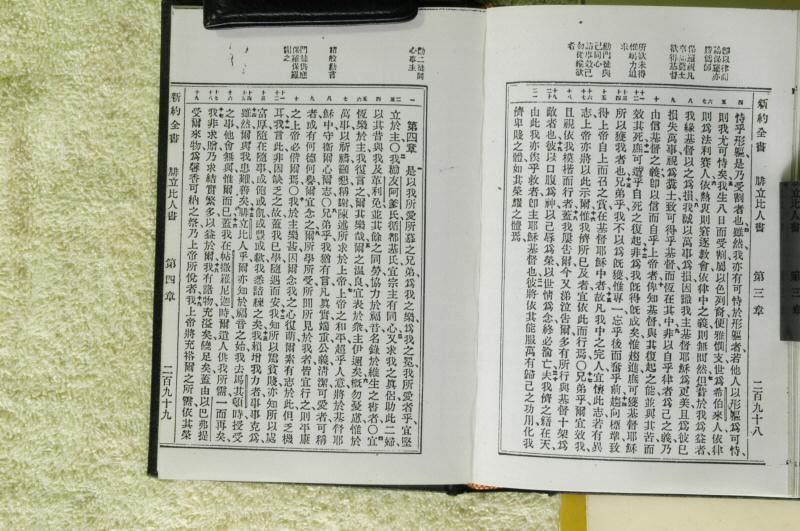 新約全書 腓立比人書 第三章 二百九十八
恃乎形軀是乃受割者也雖然我亦有可恃於形軀者若他人以形軀爲可恃
則我尤可恃矣我生八日而受割屬以色列裔便雅憫支世爲希伯來人依律
則爲法利賽人依熱衷則窘逐教會依律中之義則無間然但昔於我爲益者
我緣基督以之爲損我誠以萬事爲損因識我主基督耶穌爲更美且爲彼已
損失萬事視爲糞土致可得乎基督而恆在其中非以自乎律者爲己之義乃
由信基督之義即以信而自乎上帝者俾知基督與其復起之能並與其苦而
效其死庶可躋乎自死之復起非爲我既得既成矣惟趨進庶可獲基督耶穌
所以獲我者也兄弟乎我不以爲既獲惟專一忘乎後而奮乎前趨向標準致
得上帝自上而召之賞在基督耶穌中者故凡我中之完人宜懷此志若有異
志上帝亦將以此示爾惟我儕所已及者宜依此而行焉兄弟乎爾宜效我
且視依我模楷而行者蓋我屢告爾今又涕泣告爾多有所行與基督十架爲
敵者也彼以口腹爲神以己辱爲榮以世情爲念終必淪亡夫我儕之籍在天
由此我亦俟乎救者即主耶穌基督也彼將依其能服萬有歸己之功用化我
儕卑賤之體如其榮耀之體焉
新約全書 腓立比人書 第四章 二百九十九
第四章 是以我所愛所慕之兄弟爲我之樂爲我之冕我所愛者乎宜堅
立於主〇我勸友阿爹氏循都基氏宜宗主有同心又求我之眞侶助此二婦
以其昔與我及革利免並其餘之同勞協力於福音名錄於維生之書者〇宜
恆樂於主我復言之爾其樂哉爾之溫良宜表於衆主伊邇矣概勿憂慮惟於
萬事以祈禱籲懇稱謝陳述所求於上帝上帝之和平超乎人意將於基督耶
穌中守衛爾心爾志〇兄弟乎我猶有言凡眞實端重公義清潔可愛者可稱
者或有何德何譽爾宜念之爾所學所受所聞所見於我者皆宜行之則平康
之上帝必偕爾焉〇我於主樂甚因爾念我之心復萌爾素有志於此但乏機
耳我言此非因缺乏之故蓋我已學隨遇而安我知所以處貧賤亦知所以處
富厚隨在隨事或飽或飢或豐或歉我悉諳練之矣我賴增我力者事事克爲
雖然爾與我患難善矣腓立比人乎爾亦知於福音之始我去馬其頓時授受
之事他會無與惟爾而已蓋我在帖撒羅尼迦時爾遣人供我所需一而再矣
我非求贈乃求結實繁多以益於爾我有諸物充溢矣饒足矣蓋由以巴弗提
受爾來物爲馨香可納之祭乃上帝所悅者我上帝將充裕爾之所需依其榮